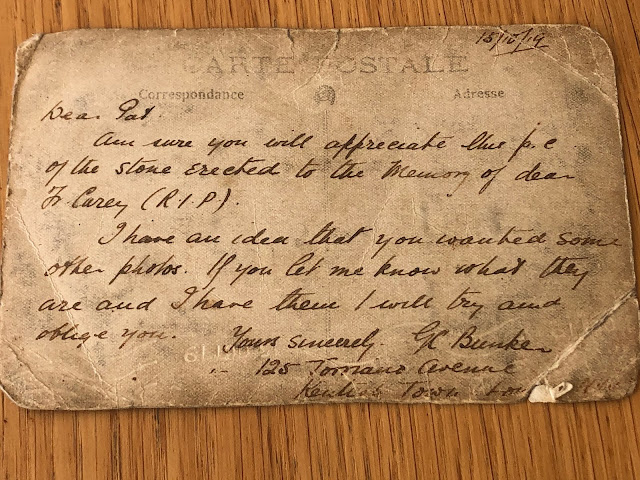 15/10/19
CARTE POSTALE
Correspondance Adresse
Dear Pat.
Am sure you will appreciate this p.c
of the stone erected to the Memory of dear
Fr Carey (R.I.P).
I have an idea that you wanted some
other photos. If you let me know what they
are and I have them I will try and
oblige you. Yours sincerely. GC Bunker
125 Torriano Avenue
Kentish Town